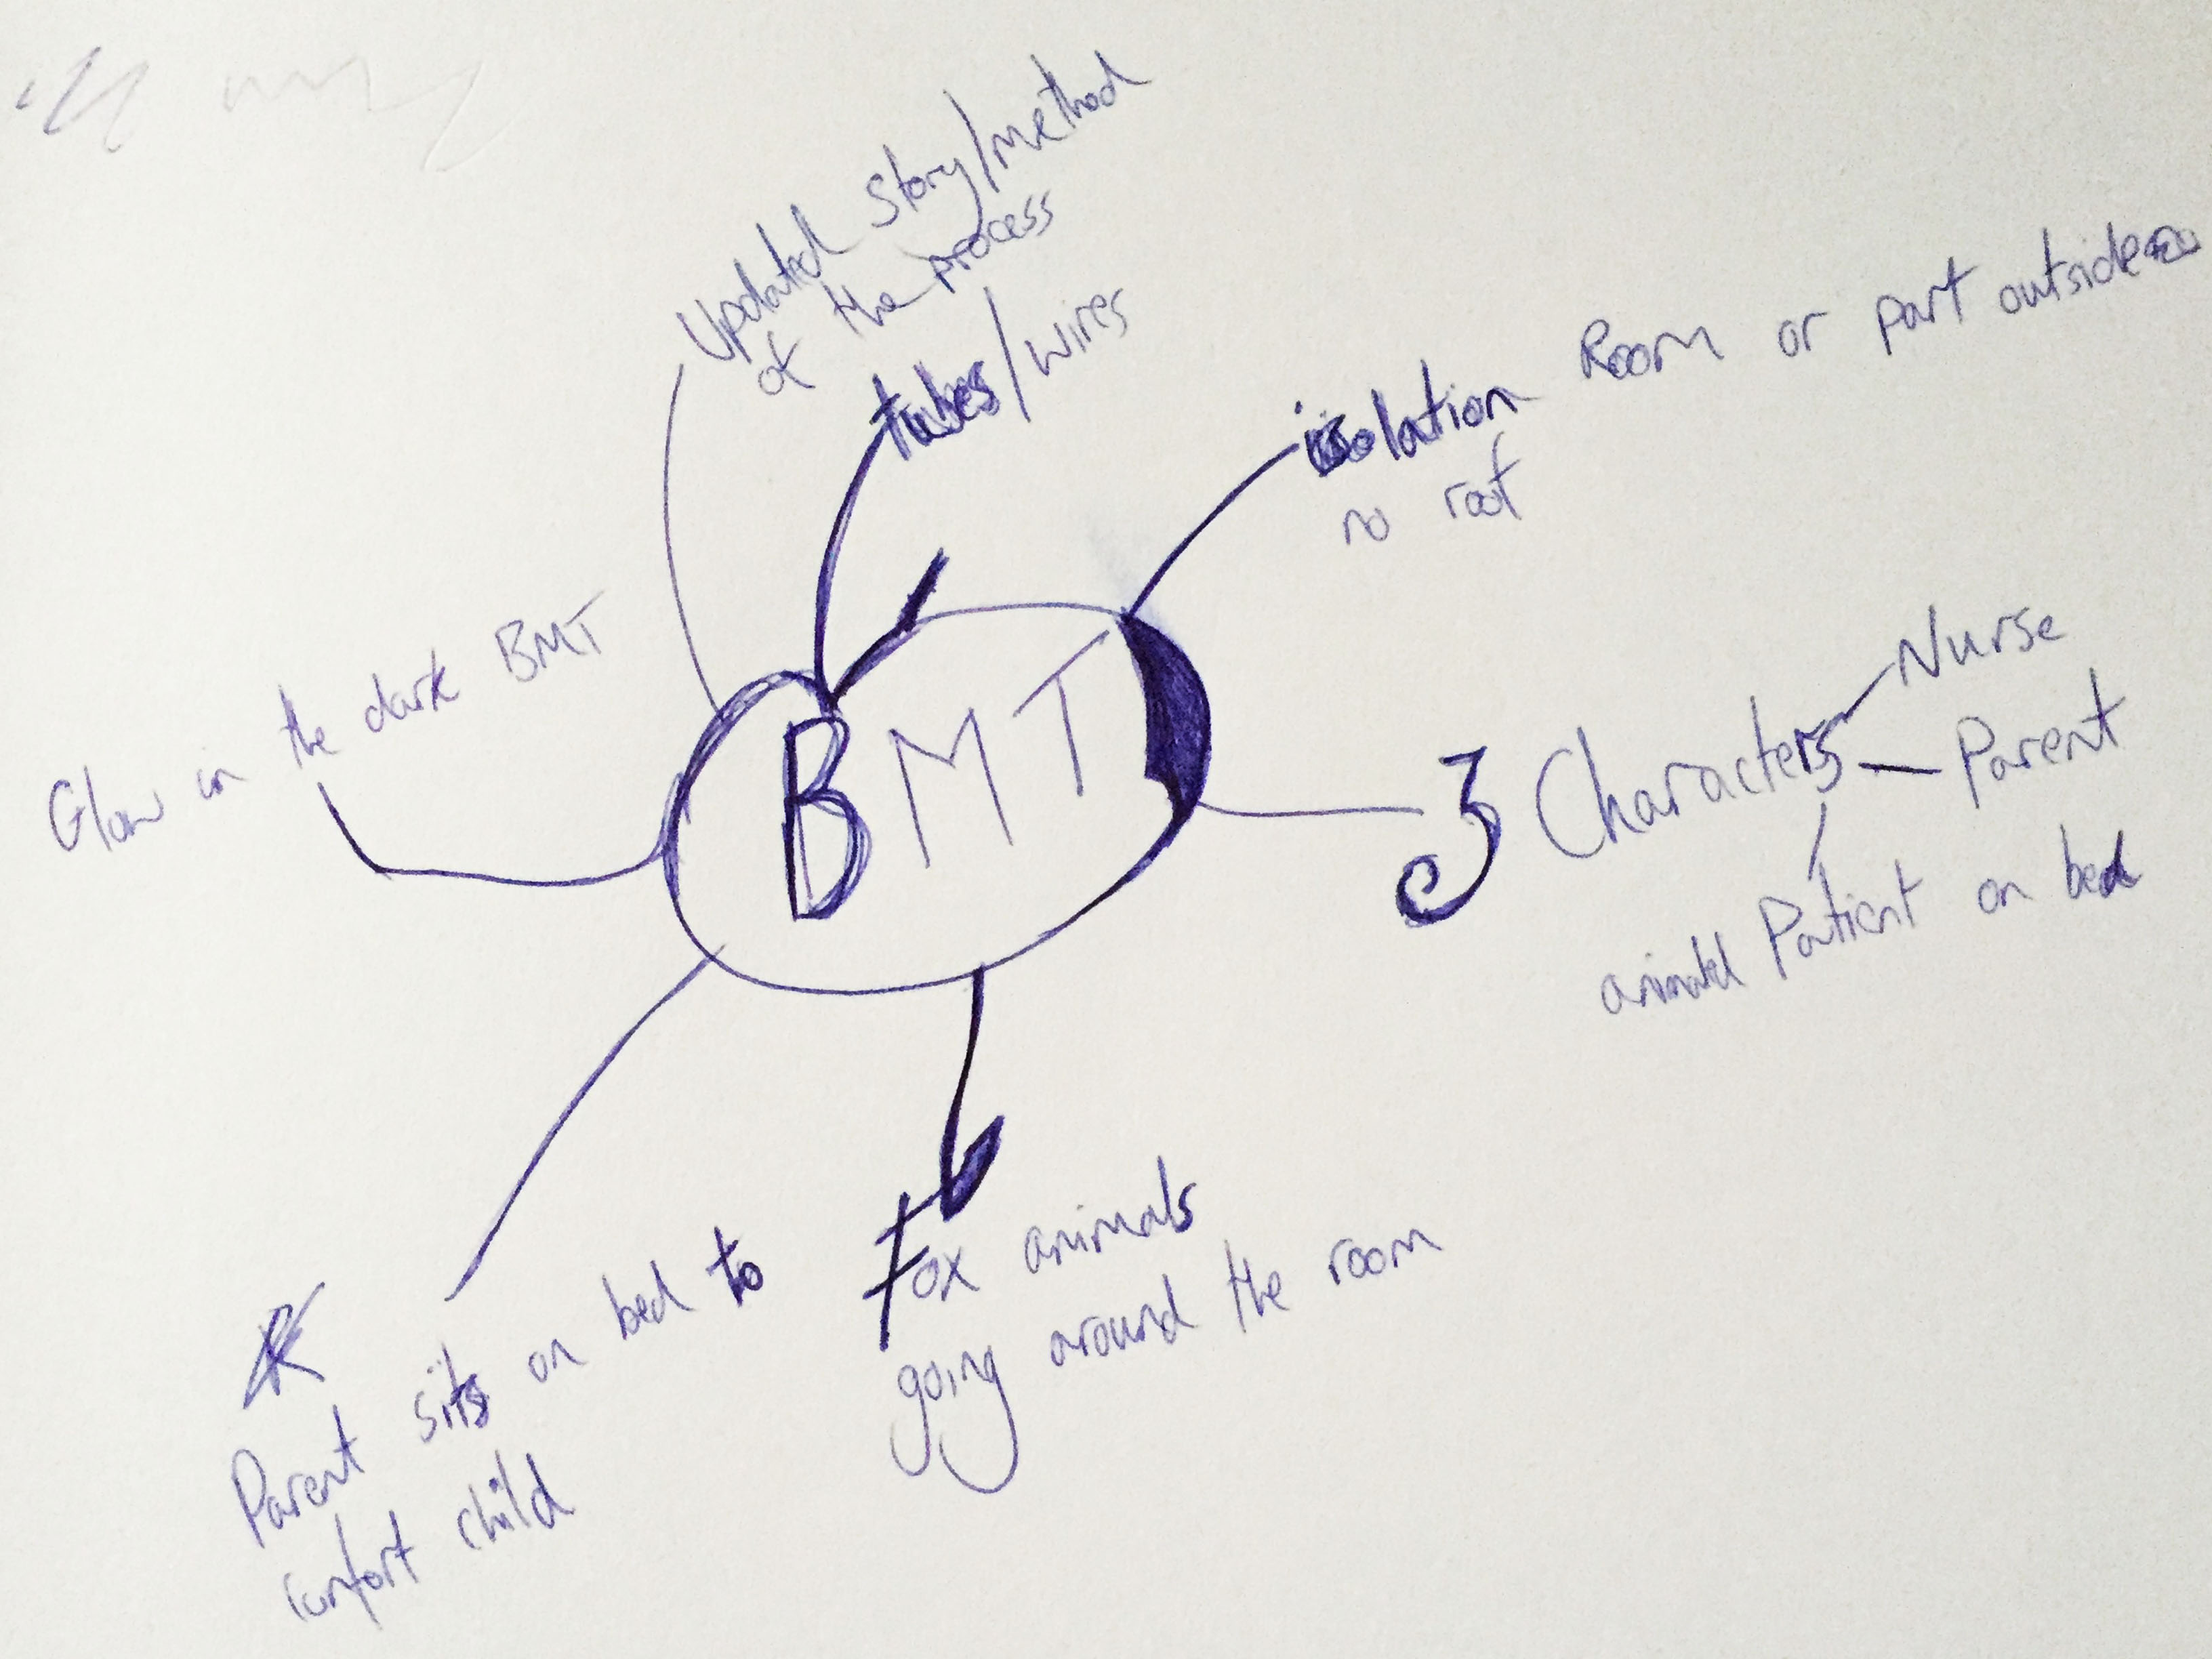 Updated Story/method
of the process
tubes/wires
isolation Room or part outside
no roof
Glow in the dark BMT
BMT
3 Characters
Nurse
Parent
Patient on bed
Fox animals
going around the room
Parent sits on bed to
comfort child